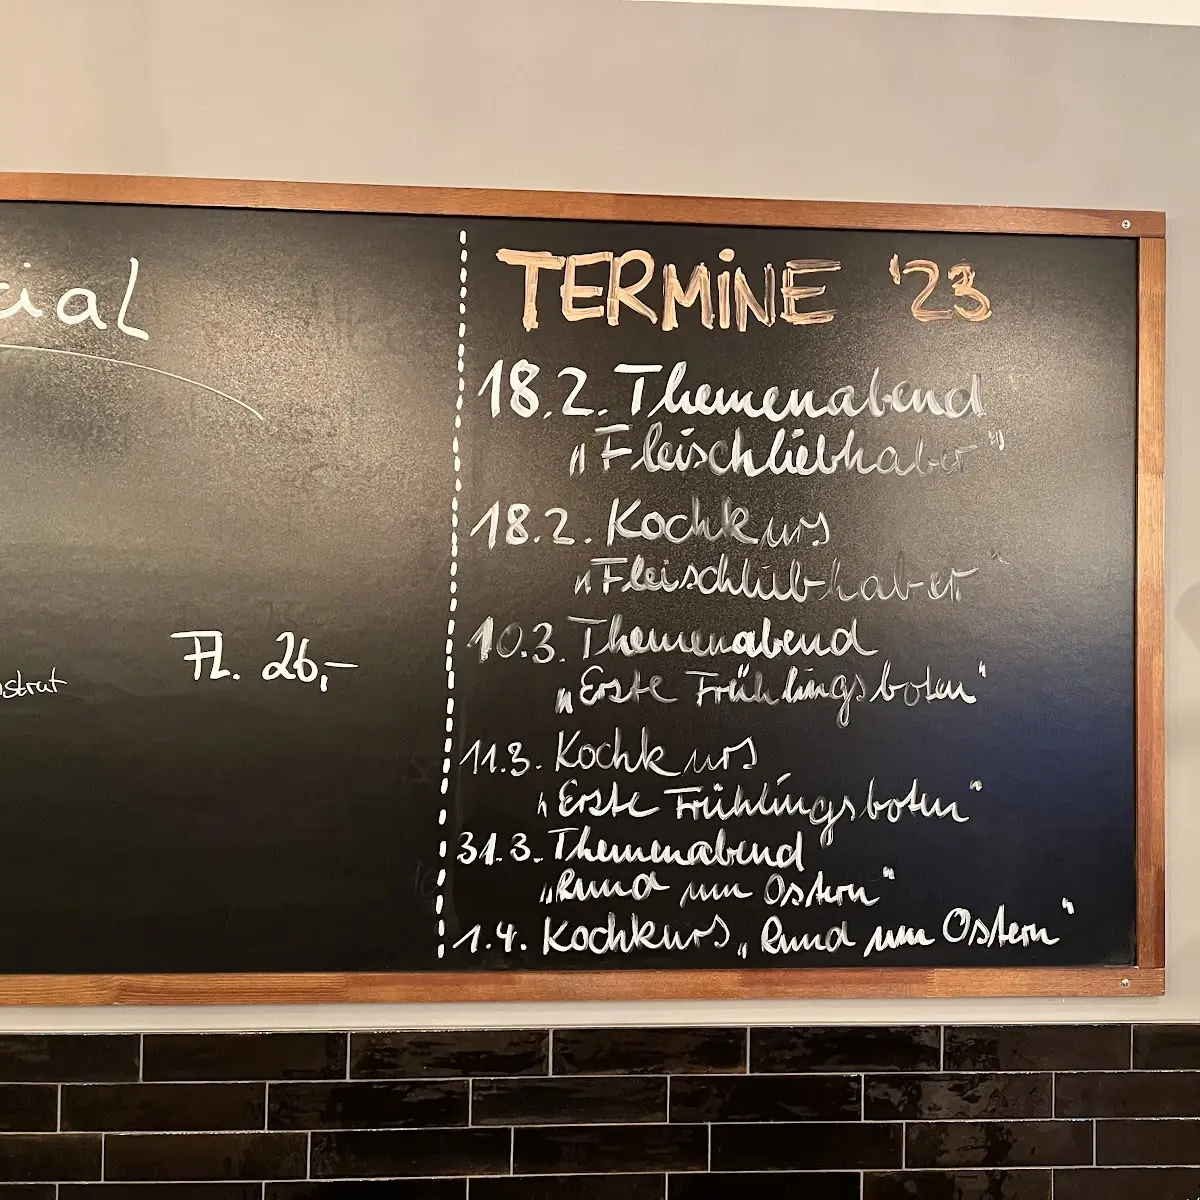 TERMINE '23
18.2. Themenabend
„Fleischliebhaber"
18.2. Kochkurs
„Fleischliebhaber"
10.3. Themenabend
„Erste Frühlingsboten"
11.3. Kochkurs
„Erste Frühlingsboten"
31.3. Themenabend
„Rund um Ostern"
1.4. Kochkurs „Rund um Ostern"
cial
Fl. 26,-
nstrut